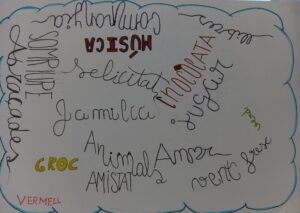 Companyia
MÚSICA
llibres
SOMRIURE
Abraçades
felicitat
XOCOLATA
jugar
família
verd
Animals
Amor
GROC
AMISTAT
vent fres
VERMELL